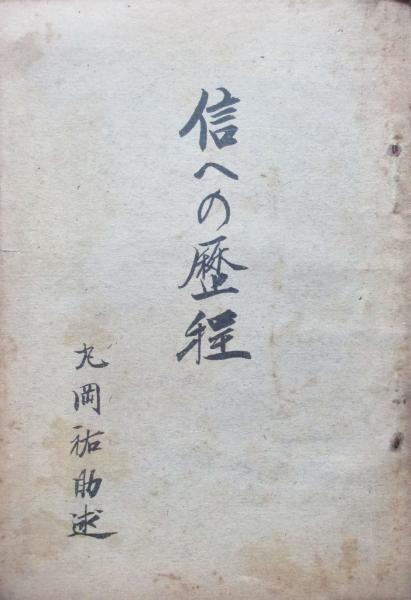 信への歴程
丸岡祐助述